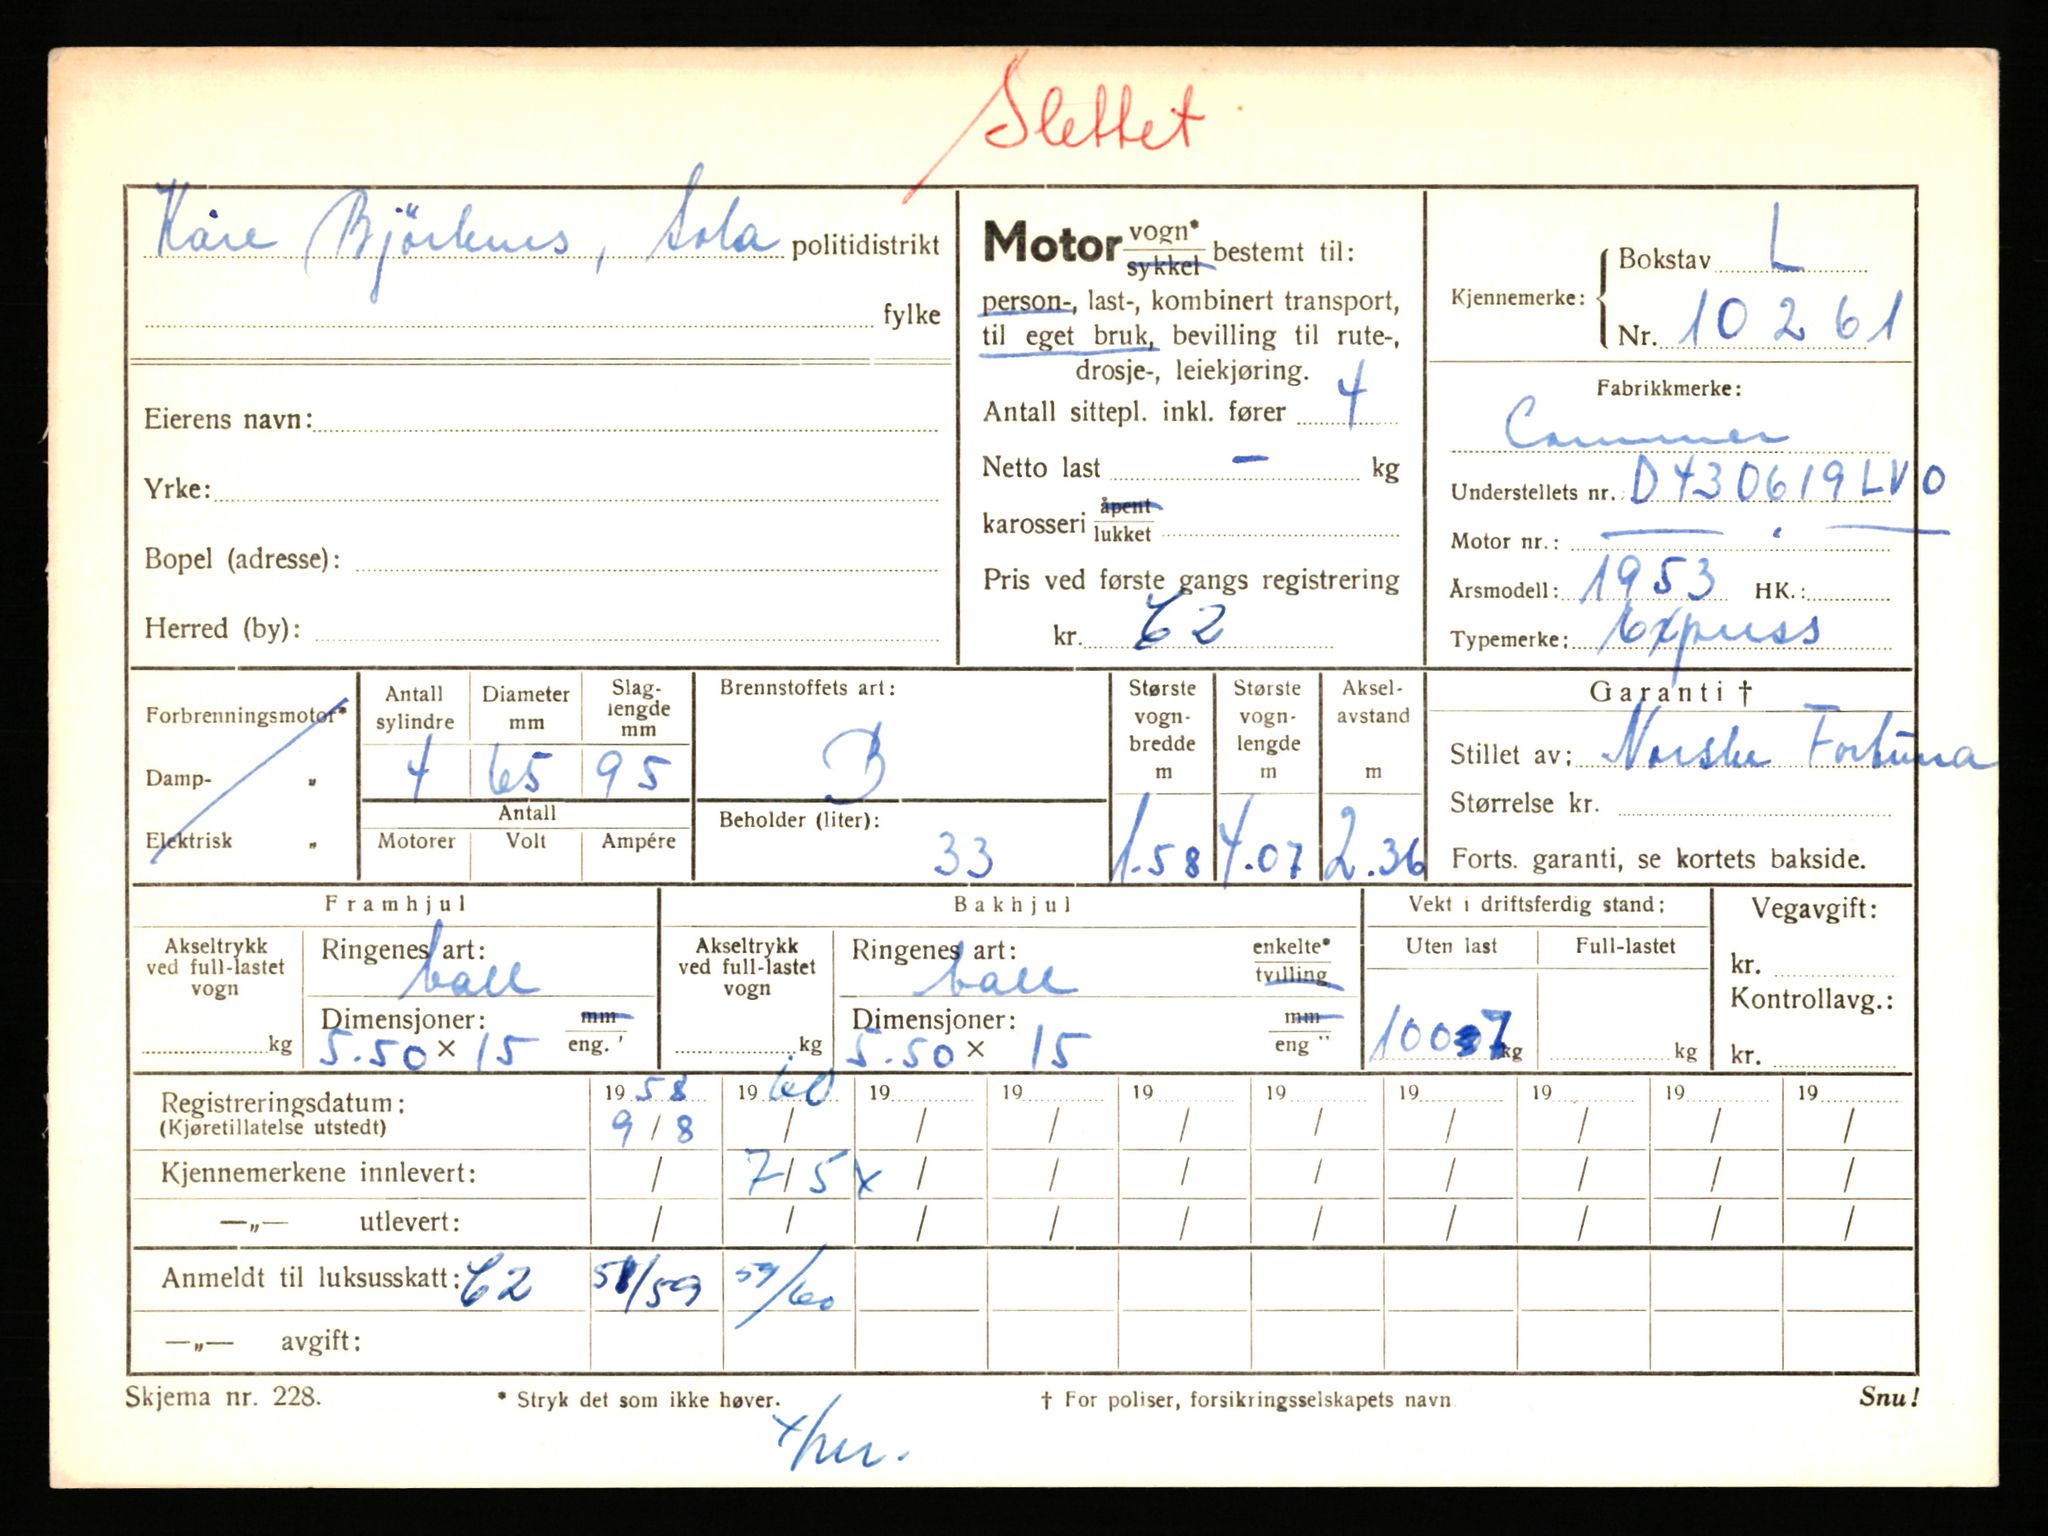 Slettet
Kåre Björknes, Sola politidistrikt
fylke
Eierens navn:
Yrke:
Bopel (adresse):
Herred (by):
Motor vogn* sykkel bestemt til:
person-, last-, kombinert transport,
til eget bruk, bevilling til rute-,
drosje-, leiekjøring.
Antall sittepl. inkl. fører 4
Netto last – kg
karosseri åpent lukket
Pris ved første gangs registrering
kr. 62
Kjennemerke: Bokstav L
Nr. 10261
Fabrikkmerke:
Commer
Understellets nr. D430619LVO
Motor nr.:
Årsmodell: 1953 HK.:
Typemerke: Express
Forbrenningsmotor*
Damp- „
Elektrisk „
Antall sylindre
4
Diameter mm
65
Slag-lengde mm
95
Antall
Motorer Volt Ampére
Brennstoffets art:
B
Beholder (liter):
33
Største vogn-bredde m
1.58
Største vogn-lengde m
4.07
Aksel-avstand m
2.36
Garanti †
Stillet av: Norske Fortuna
Størrelse kr.
Forts. garanti, se kortets bakside.
Framhjul
Akseltrykk ved full-lastet vogn
kg
Ringenes art:
ball
Dimensjoner: mm eng. "
5.50 × 15
Bakhjul
Akseltrykk ved full-lastet vogn
kg
Ringenes art: enkelte* tvilling
ball
Dimensjoner: mm eng "
5.50 × 15
Vekt i driftsferdig stand:
Uten last Full-lastet
1007 kg kg
Vegavgift:
kr.
Kontrollavg.:
kr.
Registreringsdatum: 1958 1960 19 19 19 19 19 19 19 19
(Kjøretillatelse utstedt) 9/8 / / / / / / / / /
Kjennemerkene innlevert: / 7/5 x / / / / / / / /
—„— utlevert: / / / / / / / / / /
Anmeldt til luksusskatt: 62 58/59 59/60
—„— avgift:
Skjema nr. 228. * Stryk det som ikke høver. † For poliser, forsikringsselskapets navn Snu!